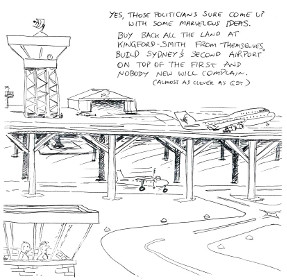 YES, THOSE POLITICIANS SURE COME UP
WITH SOME MARVELOUS IDEAS.
BUY BACK ALL THE LAND AT
KINGFORD-SMITH FROM THEMSELVES,
BUILD SYDNEY'S SECOND AIRPORT
ON TOP OF THE FIRST AND
NOBODY NEW WILL COMPLAIN.
(ALMOST AS CLEVER AS GST)